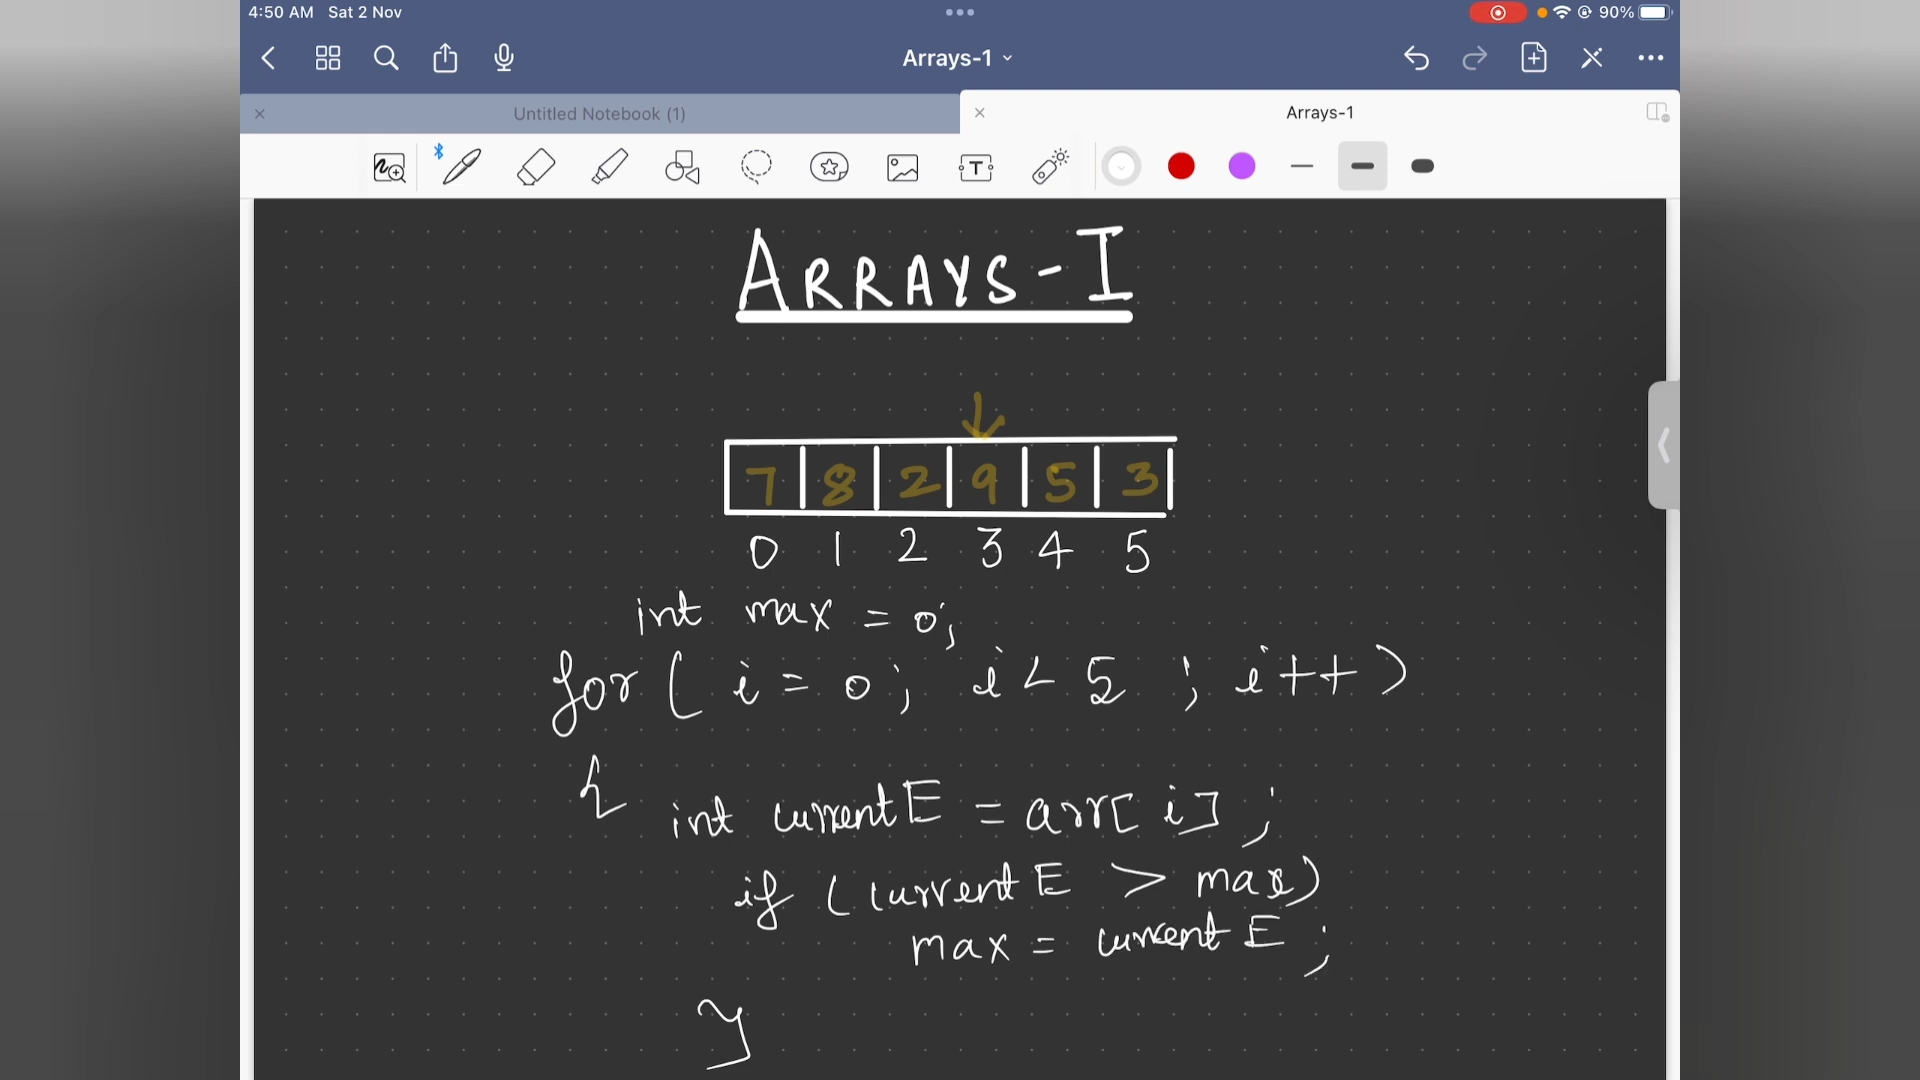 4:50 AM Sat 2 Nov
90%
Arrays-1
Untitled Notebook (1)
Arrays-1
T
ARRAYS-I
7 8 2 9 5 3
0 1 2 3 4 5
int max = 0;
for ( i = 0; i < 5 ; i++ )
{ int currentE = arr[ i ] ;
if ( currentE > max)
max = currentE ;
}